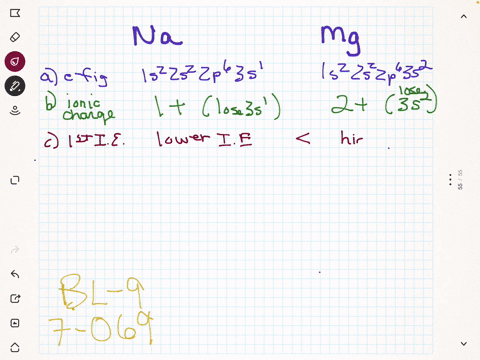 Na Mg
a) e-fig 1s²2s²2p⁶3s¹ 1s²2s²2p⁶3s²
b) ionic charge 1+ (lose 3s¹) 2+ (lose 3s²)
c) 1st I.E. lower I.E < hir
BL-9
7-069
55 / 55